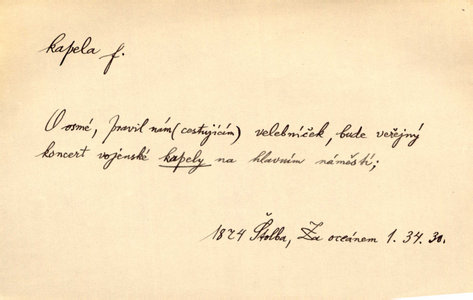 kapela f.
O osmé, pravil nám (cestujícím) velebníček, bude veřejný
koncert vojenské kapely na hlavním náměstí;
1874 Štolba, Za oceánem 1. 34. 30.